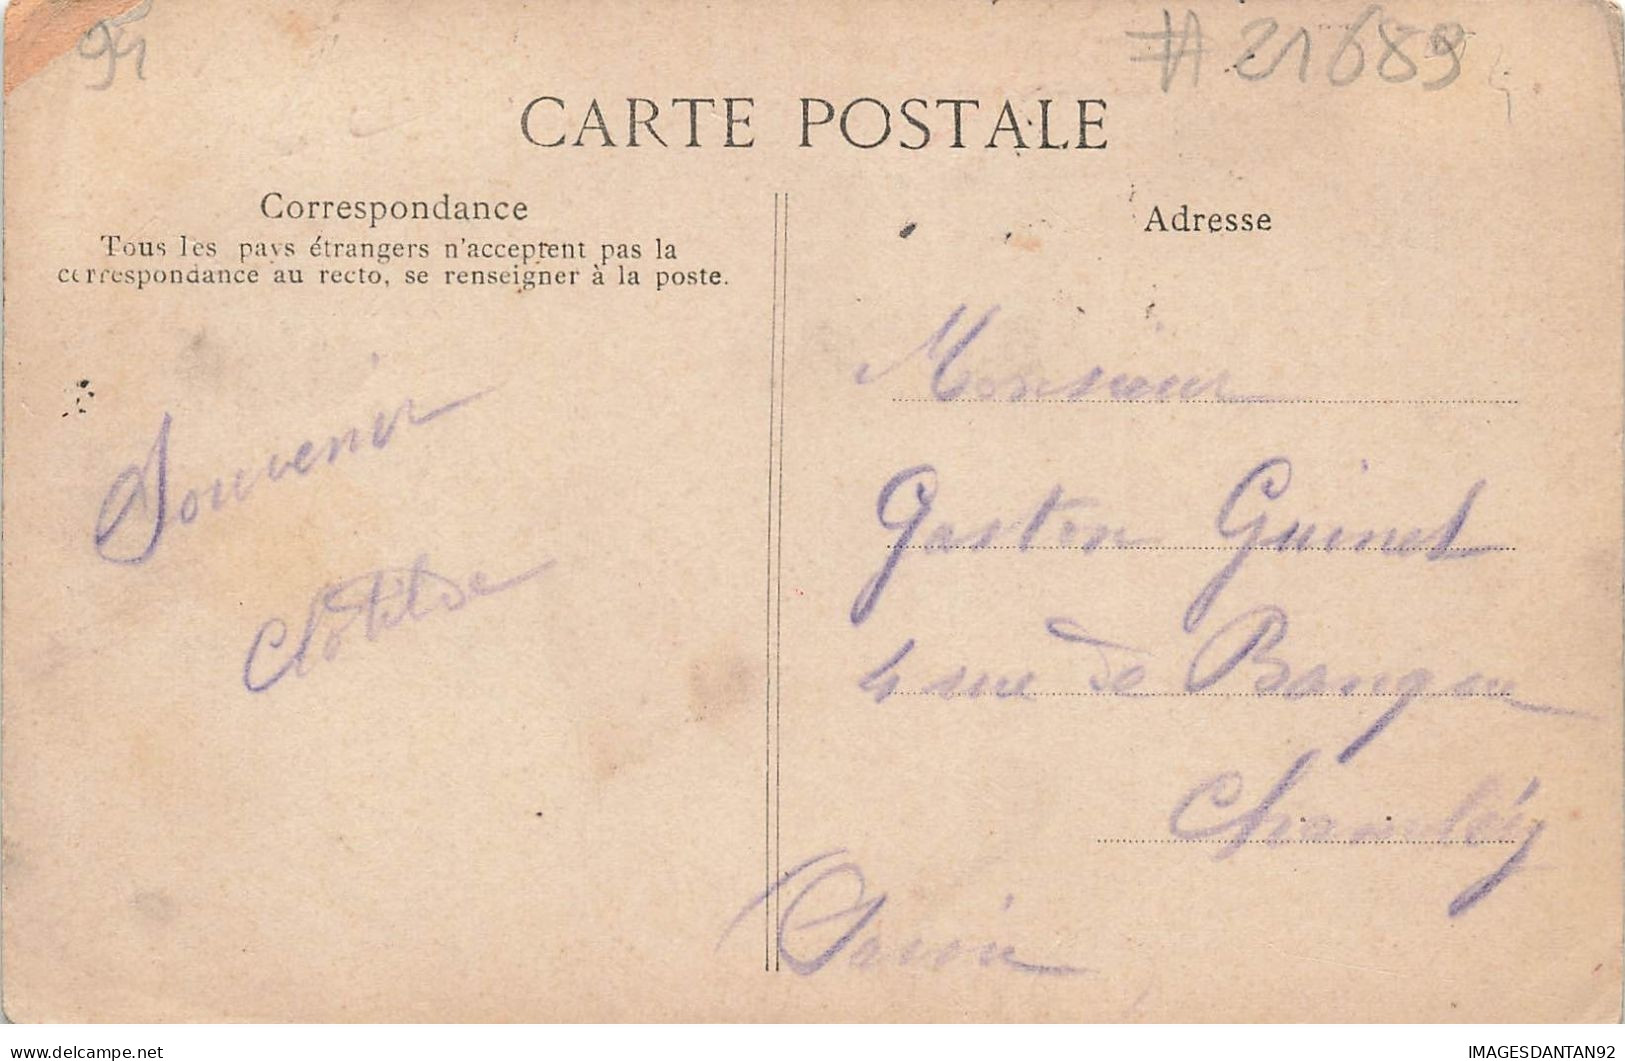 94
#21689
CARTE POSTALE
Correspondance
Tous les pays étrangers n'acceptent pas la
correspondance au recto, se renseigner à la poste.
Souvenir
Clotilde
Adresse
Monsieur
Gaston Guinet
4 rue de
IMAGESDANTAN92